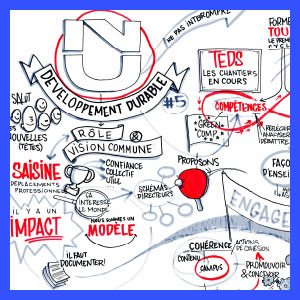 NE PAS INTERROMPRE
FORME
TOU
LE PREMIER
CYCL
TEDS
LES CHANTIERS
EN COURS
NU
DEVELOPPEMENT DURABLE
#5
SALUT
NOUVELLES
(TÊTES)
COMPÉTENCES
GREEN
COMP.
RÉFLÉCHIR
ANALYSER
DÉBATTRE
RÔLE &
VISION COMMUNE
PROPOSONS
SAISINE
DÉPLACEMENTS
PROFESSIONNELS
CONFIANCE
COLLECTIF
UTILE
ÇA
INTÉRESSE
LE MONDE
SCHÉMAS
DIRECTEURS
FAÇO
D'ENSEI
ENGAGE
IL Y A UN
IMPACT
NOUS SOMMES UN
MODÈLE
IL FAUT
DOCUMENTER!
COHÉRENCE
CONTENU
CAMPUS
DE COHÉSION
PROMOUVOIR
& CONCEVOIR